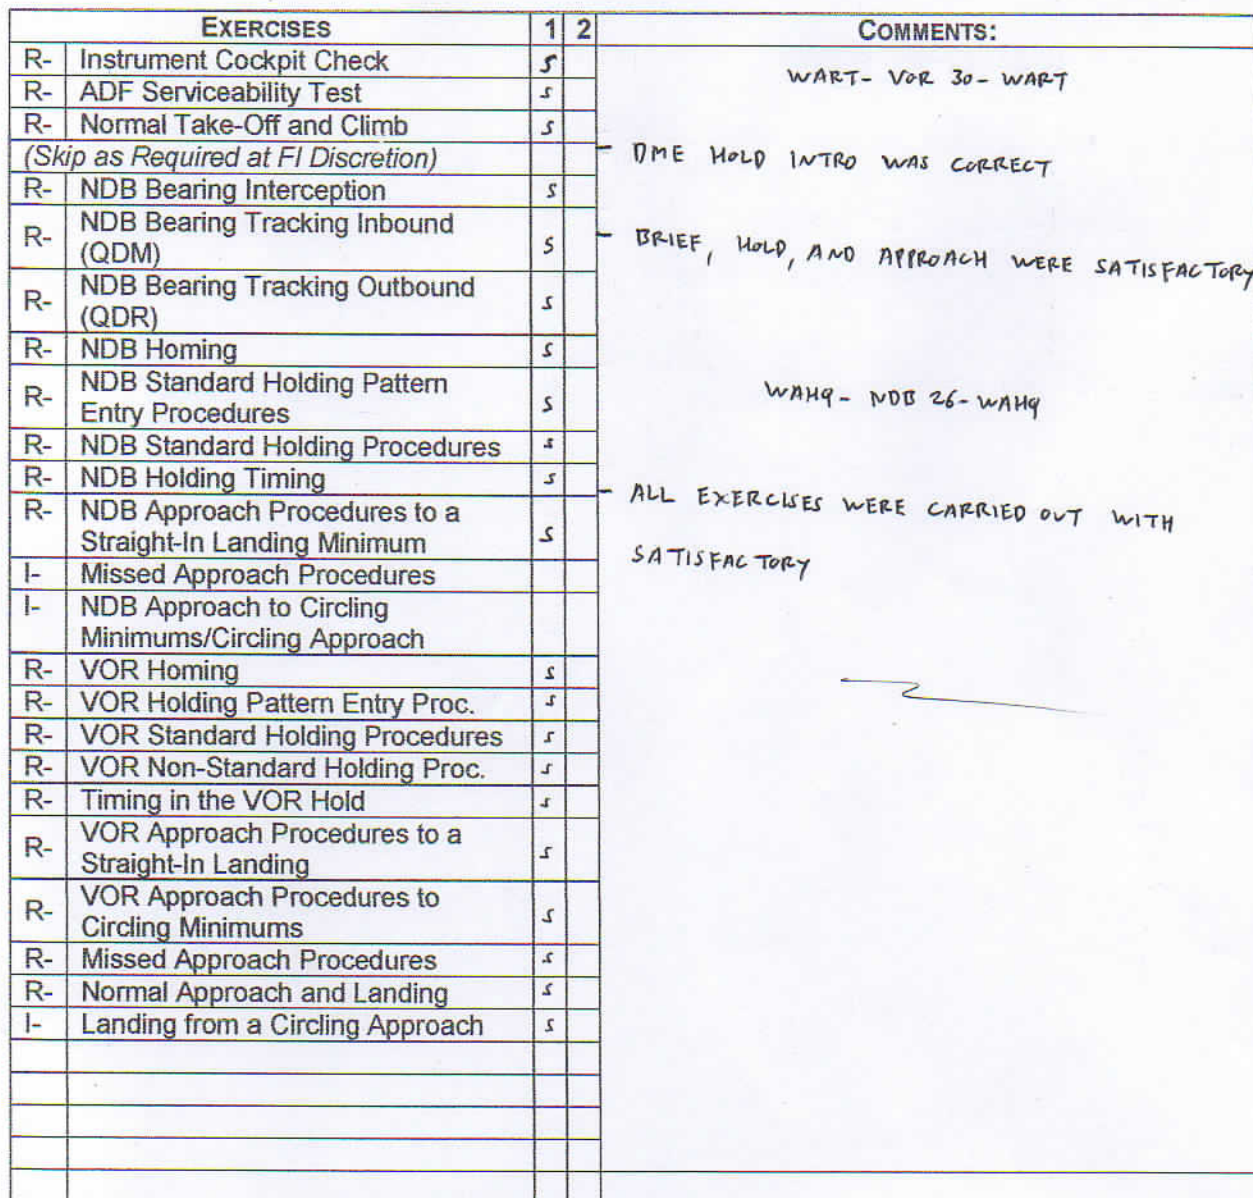 EXERCISES 1 2 COMMENTS:
R- Instrument Cockpit Check S
R- ADF Serviceability Test S
R- Normal Take-Off and Climb S
(Skip as Required at FI Discretion)
R- NDB Bearing Interception S
R- NDB Bearing Tracking Inbound
(QDM) S
R- NDB Bearing Tracking Outbound
(QDR) S
R- NDB Homing S
R- NDB Standard Holding Pattern
Entry Procedures S
R- NDB Standard Holding Procedures S
R- NDB Holding Timing S
R- NDB Approach Procedures to a
Straight-In Landing Minimum S
I- Missed Approach Procedures
I- NDB Approach to Circling
Minimums/Circling Approach
R- VOR Homing S
R- VOR Holding Pattern Entry Proc. S
R- VOR Standard Holding Procedures S
R- VOR Non-Standard Holding Proc. S
R- Timing in the VOR Hold S
R- VOR Approach Procedures to a
Straight-In Landing S
R- VOR Approach Procedures to
Circling Minimums S
R- Missed Approach Procedures S
R- Normal Approach and Landing S
I- Landing from a Circling Approach S
WART- VOR 30- WART
- DME HOLD INTRO WAS CORRECT
- BRIEF, HOLD, AND APPROACH WERE SATISFACTORY
WAHQ- NDB 26- WAHQ
- ALL EXERCISES WERE CARRIED OUT WITH
SATISFACTORY